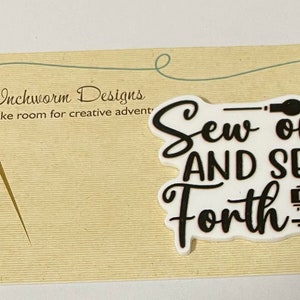 Inchworm Designs
ke room for creative advent
Sew o
AND SE
Forth